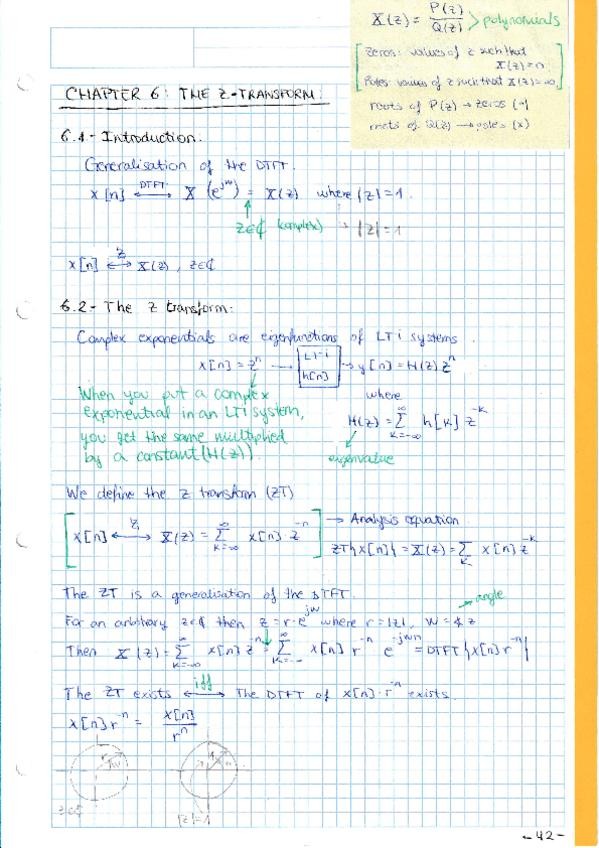 X(z) = P(z)/Q(z) > polynomials
Zeros: values of z such that
X(z)=0
Poles: values of z such that X(z)=∞
roots of P(z) → zeros (o)
roots of Q(z) → poles (x)
CHAPTER 6: THE Z-TRANSFORM.
6.1- Introduction.
Generalisation of the DTFT.
x[n] ←DTFT→ X(e^{jω}) = X(z) where |z|=1.
z∈ℂ (complex) → |z|=1
x[n] ←Z→ X(z), z∈ℂ
6.2- The z transform:
Complex exponentials are eigenfunctions of LTi systems.
x[n]=z^n → LT-i h[n] → y[n]=H(z) z^n
When you put a complex
exponential in an LTi system,
you get the same multiplied
by a constant (H(z)).
where
H(z)=∑_{k=-∞}^{∞} h[k] z^{-k}
eigenvalue
We define the z transform (ZT)
[x[n] ←Z→ X(z) = ∑_{k=-∞}^{∞} x[n] z^{-n}] → Analysis equation
ZT{x[n]} = X(z) = ∑_k x[n] z^{-k}
The ZT is a generalisation of the DTFT.
For an arbitrary z∈ℂ then z=r·e^{jω} where r=|z|, ω=∡z → angle
Then X(z)=∑_{k=-∞}^{∞} x[n] z^{-n} = ∑_{k=-∞}^{∞} x[n] r^{-n} e^{-jωn} = DTFT{x[n] r^{-n}}
The ZT exists ←iff→ The DTFT of x[n]·r^{-n} exists.
x[n] r^{-n} = x[n]/r^n
r
|z|=1
-42-